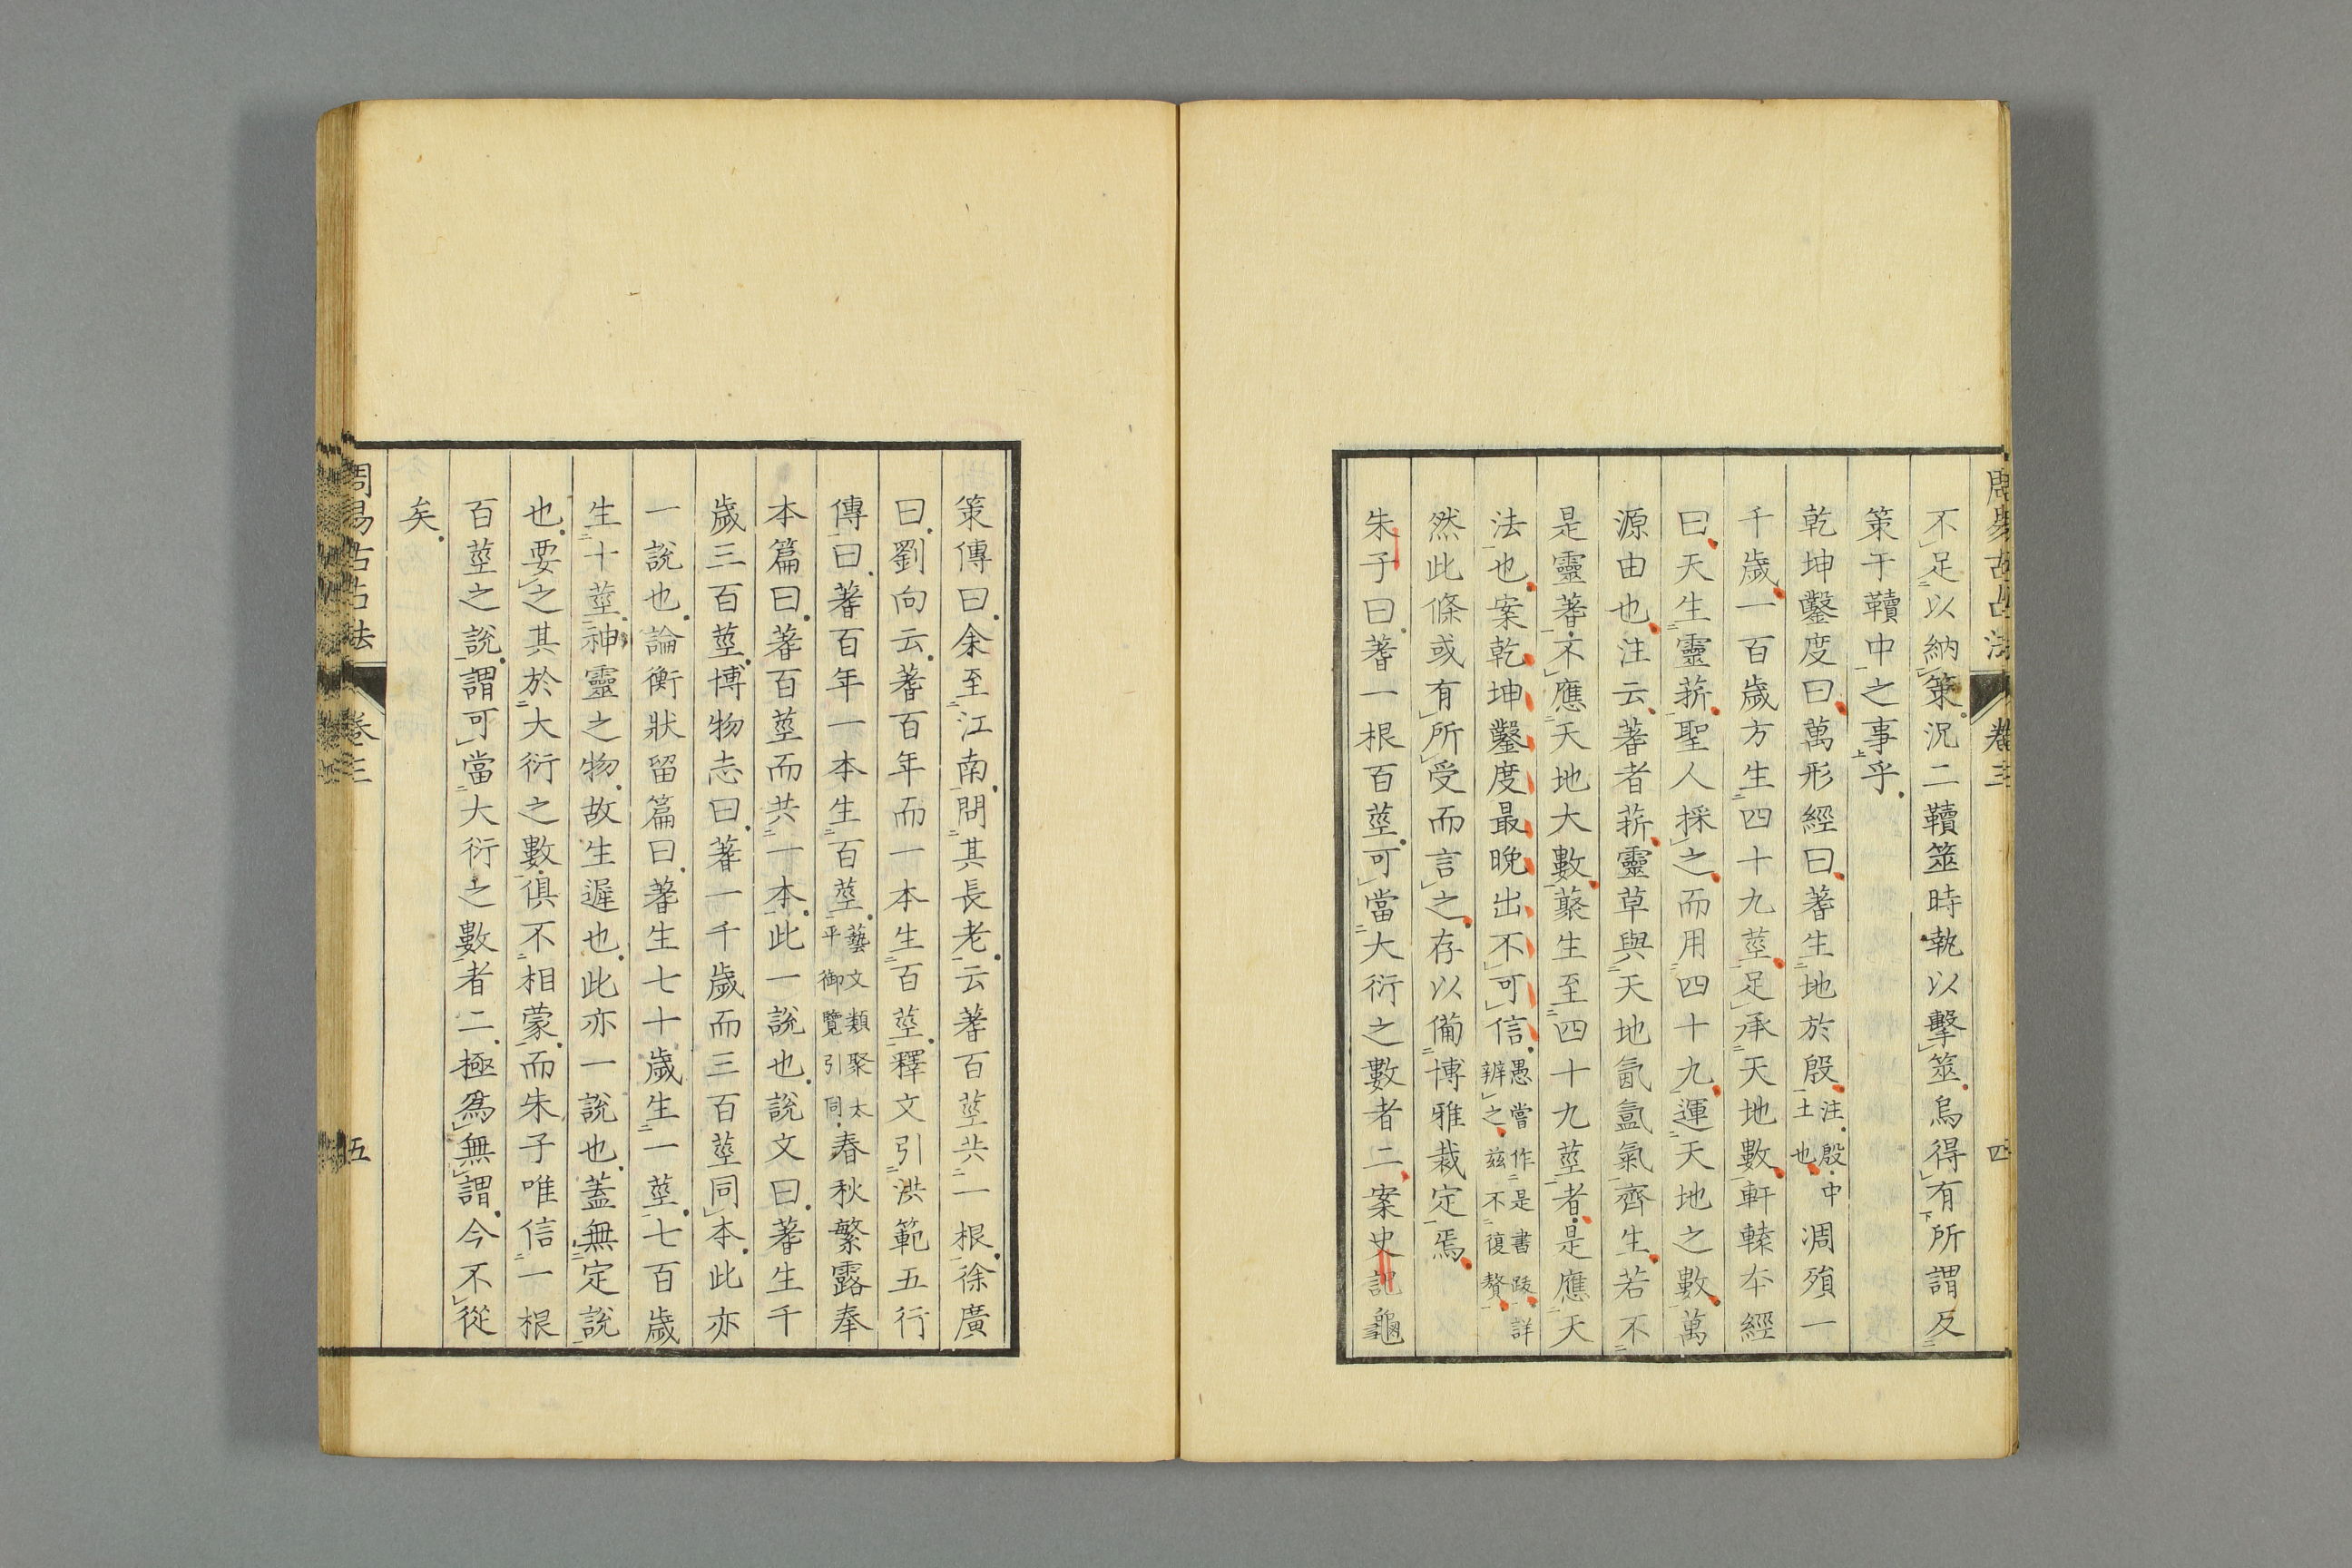 周易古占法 卷三 四
不足以納策況二韇筮時執以擊筮烏得有所謂反
策于韇中之事乎
乾坤鑿度曰萬形經曰蓍生地於殷注殷中土也凋殞一
千歲一百歲方生四十九莖足承天地數軒轅本經
曰天生靈菥聖人採之而用四十九運天地之數萬
源由也注云蓍者菥靈草與天地氤氳氣齊生若不
是靈蓍不應天地大數蘂生至四十九莖者是應天
法也案乾坤鑿度最晚出不可信愚嘗作是書跋詳辨之茲不復贅
然此條或有所受而言之存以備博雅裁定焉
朱子曰蓍一根百莖可當大衍之數者二案史記龜
策傳曰余至江南問其長老云蓍百莖共一根徐廣
曰劉向云蓍百年而一本生百莖釋文引洪範五行
傳曰蓍百年一本生百莖藝文類聚太平御覽引同春秋繁露奉
本篇曰蓍百莖而共一本此一說也說文曰蓍生千
歲三百莖博物志曰蓍一千歲而三百莖同本此亦
一說也論衡狀留篇曰蓍生七十歲生一莖七百歲
生十莖神靈之物故生遲也此亦一說也蓋無定說
也要之其於大衍之數俱不相蒙而朱子唯信一根
百莖之說謂可當大衍之數者二極爲無謂今不從
矣
周易古占法 卷三 五